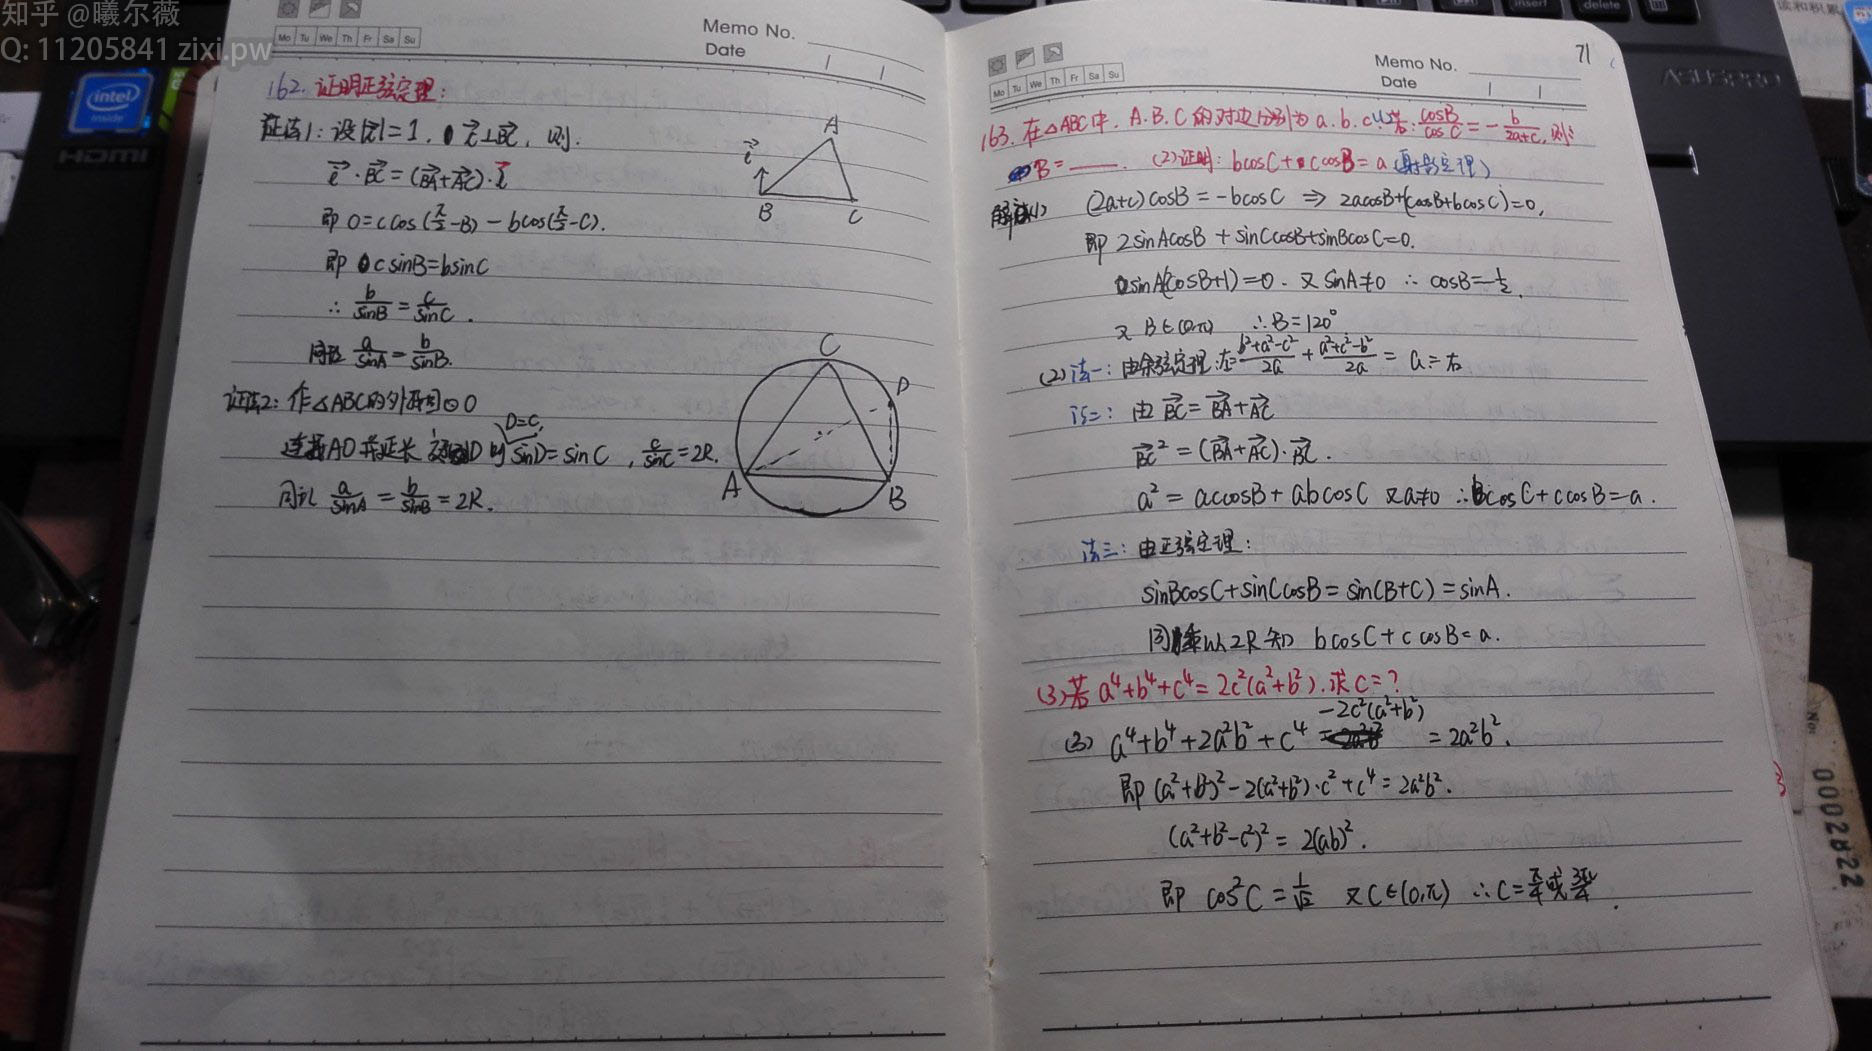 知乎 @曦尔薇
Q: 11205841 zixi.pw
Mo Tu We Th Fr Sa Su
Memo No.
Date
162. 证明正弦定理:
证法1: 设|i|=1, i⊥BC, 则.
i·BC=(BA+AC)·i
即 0=c cos(π/2-B) - b cos(π/2-C).
即 c sinB=b sinC
∴ b/sinB = c/sinC.
同理 a/sinA = b/sinB.
A
i
B
C
证法2: 作△ABC的外接圆⊙O
D=C,
连接AO并延长交圆于D 则 sinD=sinC, c/sinC=2R.
同理 a/sinA = b/sinB = 2R.
C
D
A
B
intel inside
HDMI
insert
delete
ASUSPRO
Mo Tu We Th Fr Sa Su
Memo No.
Date
71
163. 在△ABC中, A.B.C的对边分别为a.b.c, (1)若: cosB/cosC = -b/(2a+c), 则:
B=____. (2)证明: bcosC+ccosB=a (射影定理)
解法(1) (2a+c)cosB=-bcosC ⇒ 2acosB+(ccosB+bcosC)=0,
即 2sinAcosB+sinCcosB+sinBcosC=0.
sinA(2cosB+1)=0. 又sinA≠0 ∴ cosB=-1/2.
又 B∈(0,π) ∴B=120°
(2) 法一: 由余弦定理: 左=(b²+a²-c²)/2a + (a²+c²-b²)/2a = a=右
法二: 由 BC=BA+AC
BC²=(BA+AC)·BC.
a²=accosB+abcosC 又a≠0 ∴bcosC+ccosB=a.
法三: 由正弦定理:
sinBcosC+sinCcosB=sin(B+C)=sinA.
同乘以2R知 bcosC+ccosB=a.
(3)若 a⁴+b⁴+c⁴=2c²(a²+b²), 求C=?
-2c²(a²+b²)
(3) a⁴+b⁴+2a²b²+c⁴ =2a²b².
即 (a²+b²)²-2(a²+b²)·c²+c⁴=2a²b².
(a²+b²-c²)²=2(ab)².
即 cos²C=1/√2 又C∈(0,π) ∴C=π/4或3π/4.
No.
0002822